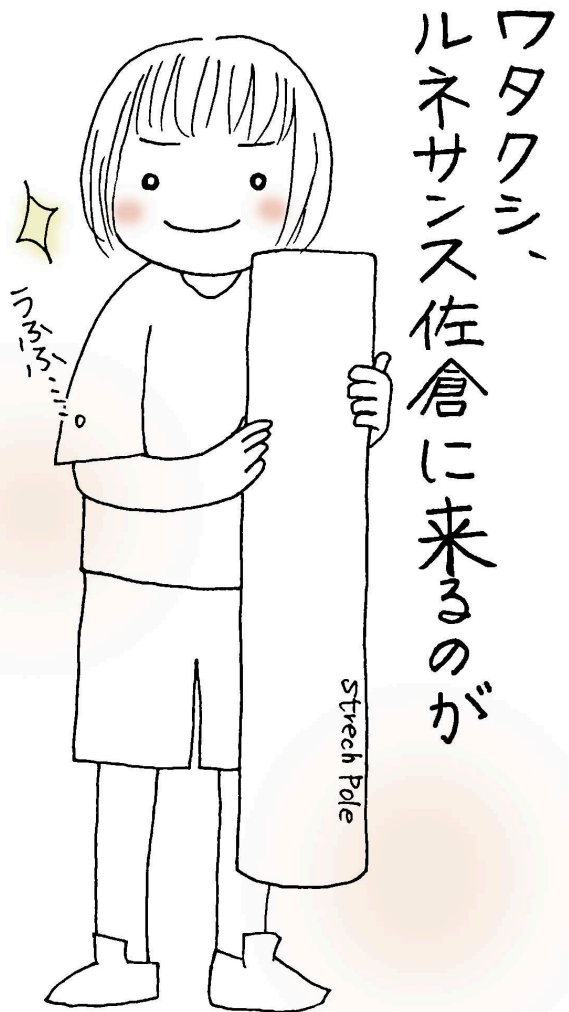 ワタクシ、
ルネサンス佐倉に来るのが
うふふ……。
strech Pole